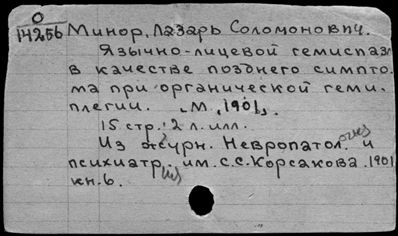 О
14256 Минор, Лазарь Соломонович.
Язычно-лицевой гемиспазм
в качестве позднего симпто.
ма при органической геми.
плегии. М., 1901,.
15 стр.; 2 л. илл.
Из журн. Невропатол. и
психиатр. им. С.С. Корсакова. 1901
кн. 6.